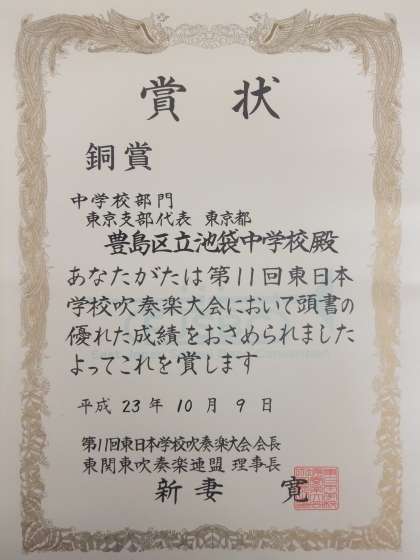 賞状
銅賞
中学校部門
東京支部代表 東京都
豊島区立池袋中学校殿
あなたがたは第11回東日本
学校吹奏楽大会において頭書の
優れた成績をおさめられました
よってこれを賞します
平成 23 年 10 月 9 日
第11回東日本学校吹奏楽大会会長
東関東吹奏楽連盟 理事長
新妻 寛